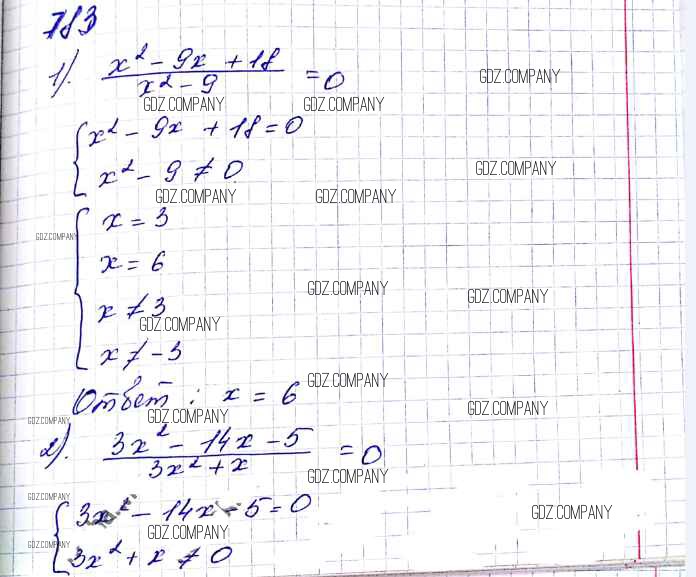 783
1). (x² - 9x + 18)/(x² - 9) = 0
GDZ.COMPANY
GDZ.COMPANY GDZ.COMPANY
{ x² - 9x + 18 = 0
x² - 9 ≠ 0
GDZ.COMPANY
GDZ.COMPANY GDZ.COMPANY
{ x = 3
GDZ.COMPANY
x = 6
GDZ.COMPANY
GDZ.COMPANY
x ≠ 3
GDZ.COMPANY
x ≠ -3
GDZ.COMPANY
Ответ: x = 6
GDZ.COMPANY
GDZ.COMPANY GDZ.COMPANY
2). (3x² - 14x - 5)/(3x² + x) = 0
GDZ.COMPANY
GDZ.COMPANY
{ 3x² - 14x - 5 = 0
GDZ.COMPANY
GDZ.COMPANY
GDZ.COMPANY
3x² + x ≠ 0